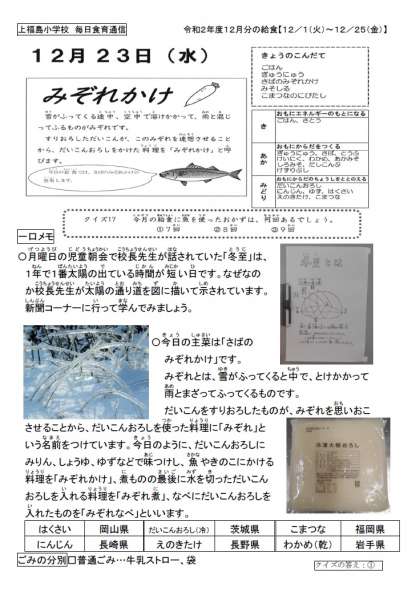 上福島小学校 毎日食育通信
令和2年度12月分の給食【12/1(火)~12/25(金)】
12月23日(水)
きょうのこんだて
ごはん
ぎゅうにゅう
さばのみぞれかけ
みそしる
こまつなのにびたし
みぞれかけ
雪がふってくる途中、空中で溶けかかって、雨と混じ
ってふるものがみぞれです。
すりおろしただいこんが、このみぞれを連想させること
から、だいこんおろしをかけた料理を「みぞれかけ」と呼
びます。
き
おもにエネルギーのもとになる
ごはん、さとう
あか
おもにからだをつくる
みどり
おもにからだのちょうしをととのえる
だいこんおろし
にんじん、ゆず、はくさい
えのきたけ、こまつな
クイズ17 今月の給食に魚を使ったおかずは、何回あるでしょう。
①7回 ②8回 ③9回
一口メモ
○月曜日の児童朝会で校長先生が話されていた「冬至」は、
1年で1番太陽の出ている時間が短い日です。なぜなの
か校長先生が太陽の通り道を図に描いて示されています。
新聞コーナーに行って学んでみましょう。
○今日の主菜は「さばの
みぞれかけ」です。
みぞれとは、雪がふってくると中で、とけかかって
雨とまざってふってくるものです。
だいこんをすりおろしたものが、みぞれを思いおこ
させることから、だいこんおろしを使った料理に「みぞれ」と
いう名前をつけています。今日のように、だいこんおろしに
みりん、しょうゆ、ゆずなどで味つけし、魚やきのこにかける
料理を「みぞれかけ」、煮ものの最後に水を切っただいこん
おろしを入れる料理を「みぞれ煮」、なべにだいこんおろしを
入れたものを「みぞれなべ」といいます。
冬至とは
冷凍大根おろし
はくさい 岡山県 だいこんおろし(冷) 茨城県 こまつな 福岡県
にんじん 長崎県 えのきたけ 長野県 わかめ(乾) 岩手県
ごみの分別 □普通ごみ…牛乳ストロー、袋
クイズの答え:①